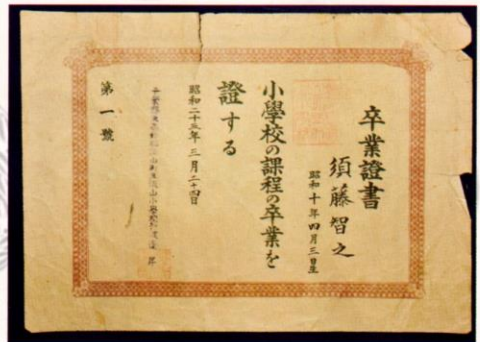 卒業證書
須藤智之
昭和十年四月三日生
小學校の課程の卒業を
證する
昭和二十三年三月二十四日
第一號